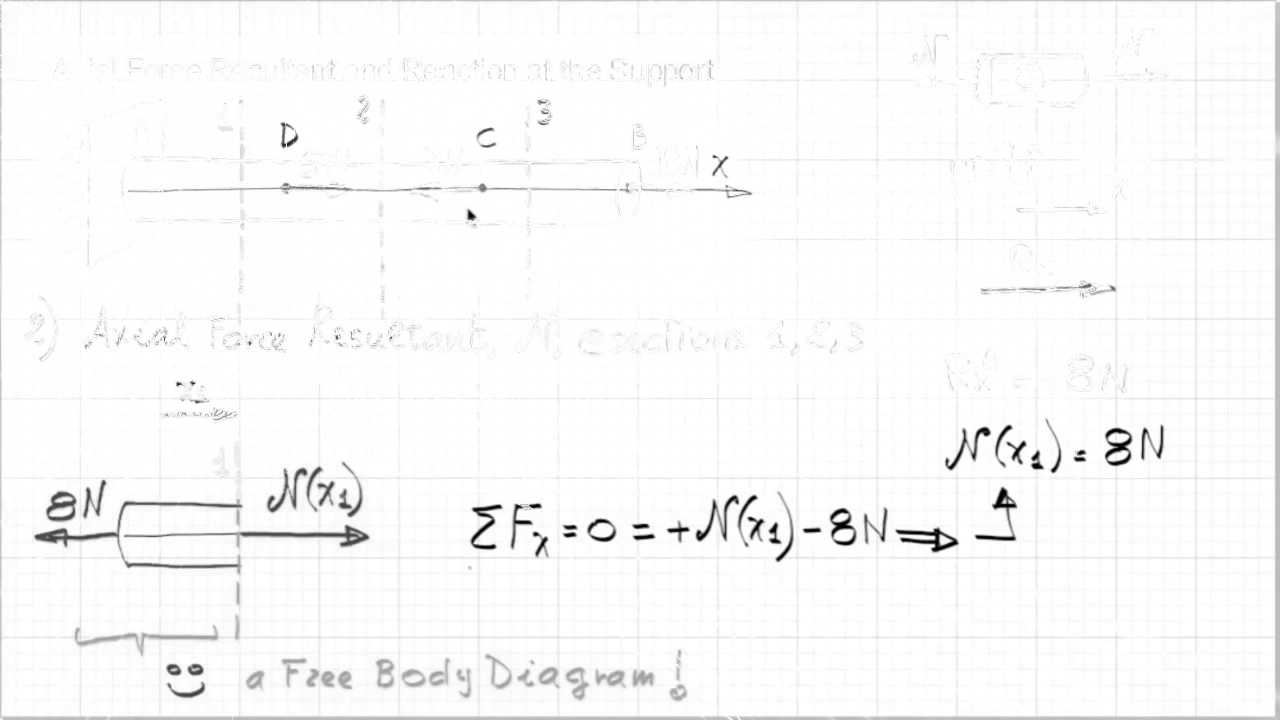 Axial Force Resultant and Reaction at the Support
N N
1 2 3
D C B
10N X
x
2) Axial Force Resultant, N, @ sections 1, 2, 3
x1
1
8N N(x1)
N(x1) = 8N
ΣFx = 0 = +N(x1) - 8N ⇒
a Free Body Diagram!